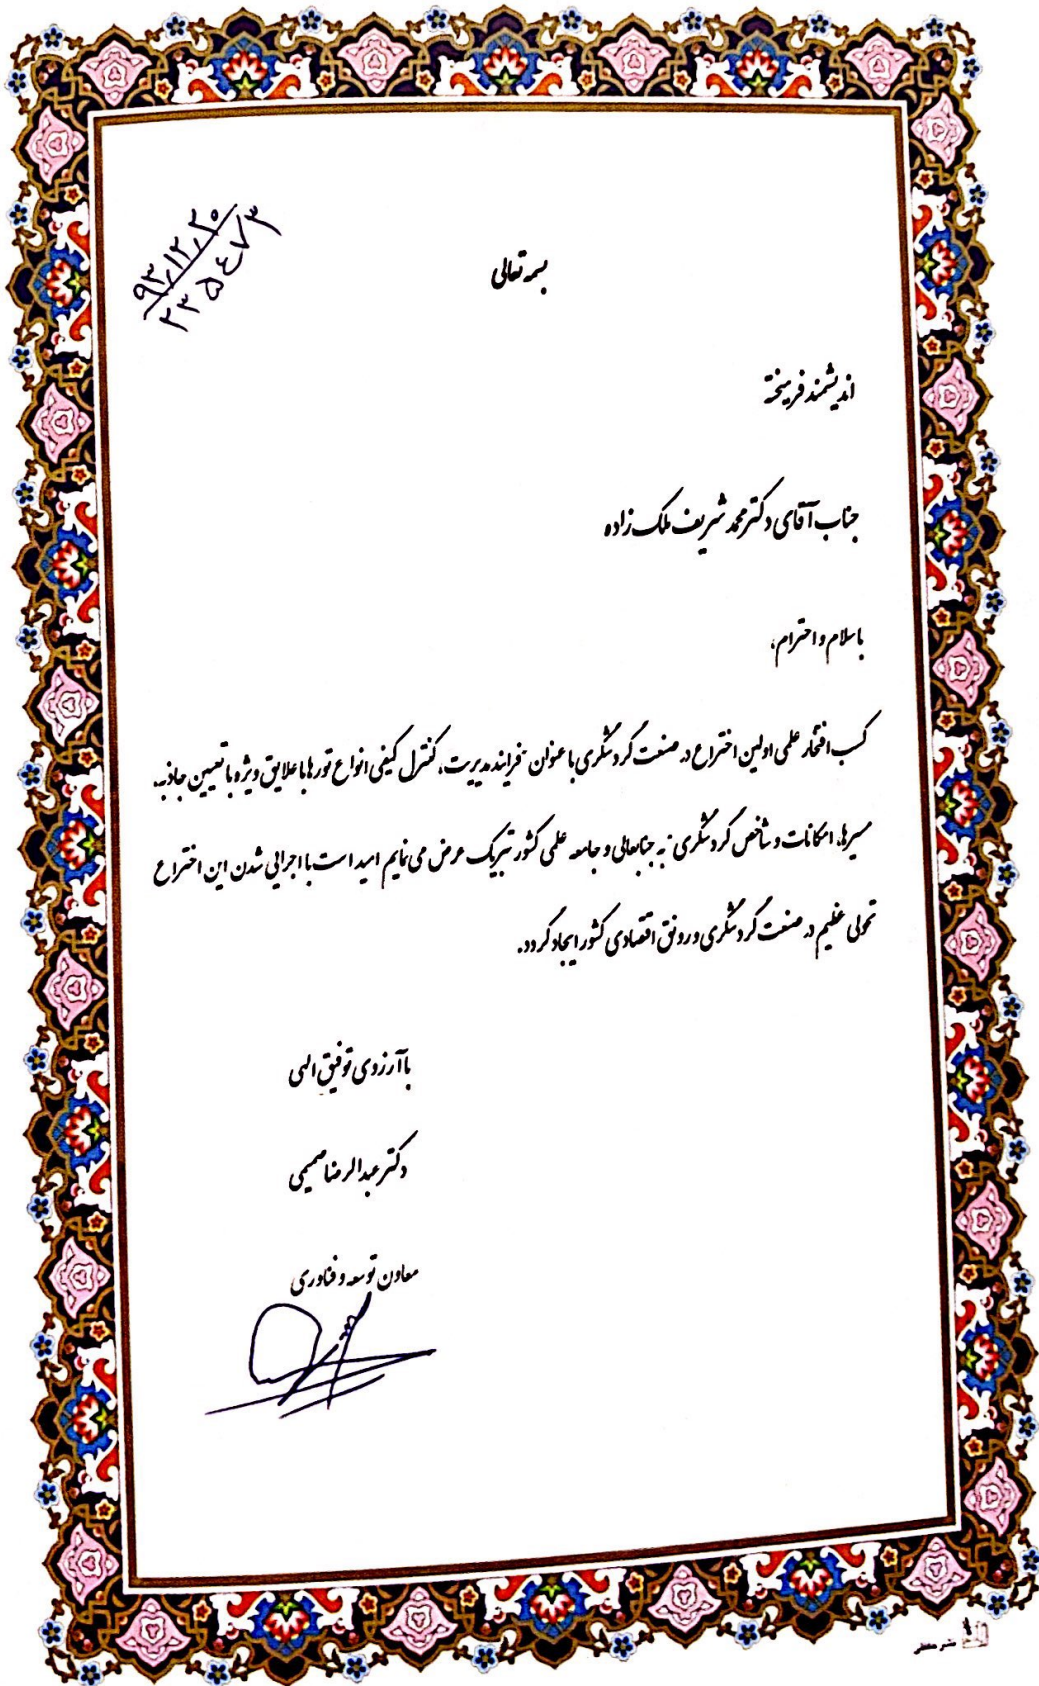 ۹۳،۱۲،۲۰
۲۳۵۴۷۳
بسمه تعالی
اندیشمند فرهیخته
جناب آقای دکتر محمد شریف ملک زاده
باسلام و احترام،
کسب افتخار علمی اولین اختراع در صنعت گردشگری با عنوان "فرایند مدیریت، کنترل کیفی انواع تورها با علایق ویژه با تعیین جاذبه،
مسیرها، امکانات و شاخص گردشگری" به جنابعالی و جامعه علمی کشور تبریک عرض می نمایم امید است با اجرایی شدن این اختراع
تحولی عظیم در صنعت گردشگری و رونق اقتصادی کشور ایجاد گردد.
با آرزوی توفیق الهی
دکتر عبدالرضا صمیمی
معاون توسعه و فناوری